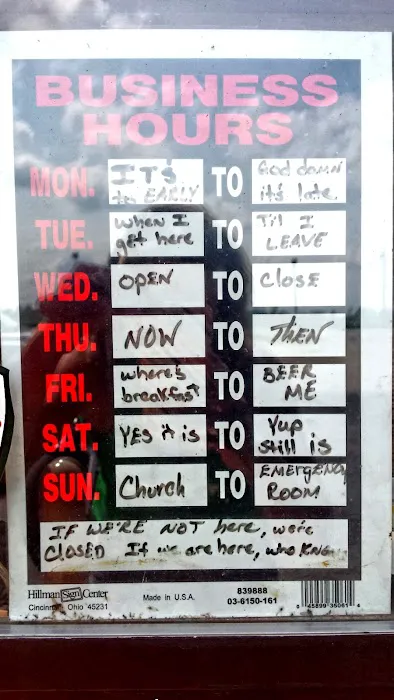 BUSINESS
HOURS
MON. IT'S to EARLY TO God damn it's late
TUE. when I get here TO Til I LEAVE
WED. OPEN TO Close
THU. NOW TO THEN
FRI. where's breakfast TO BEER ME
SAT. YES it is TO Yup still is
SUN. Church TO EMERGENCY ROOM
IF WE'RE NOT here, we're
CLOSED If we are here, who
Hillman Sign Center Made in U.S.A. 839888
Ohio 45231 03-6150-161